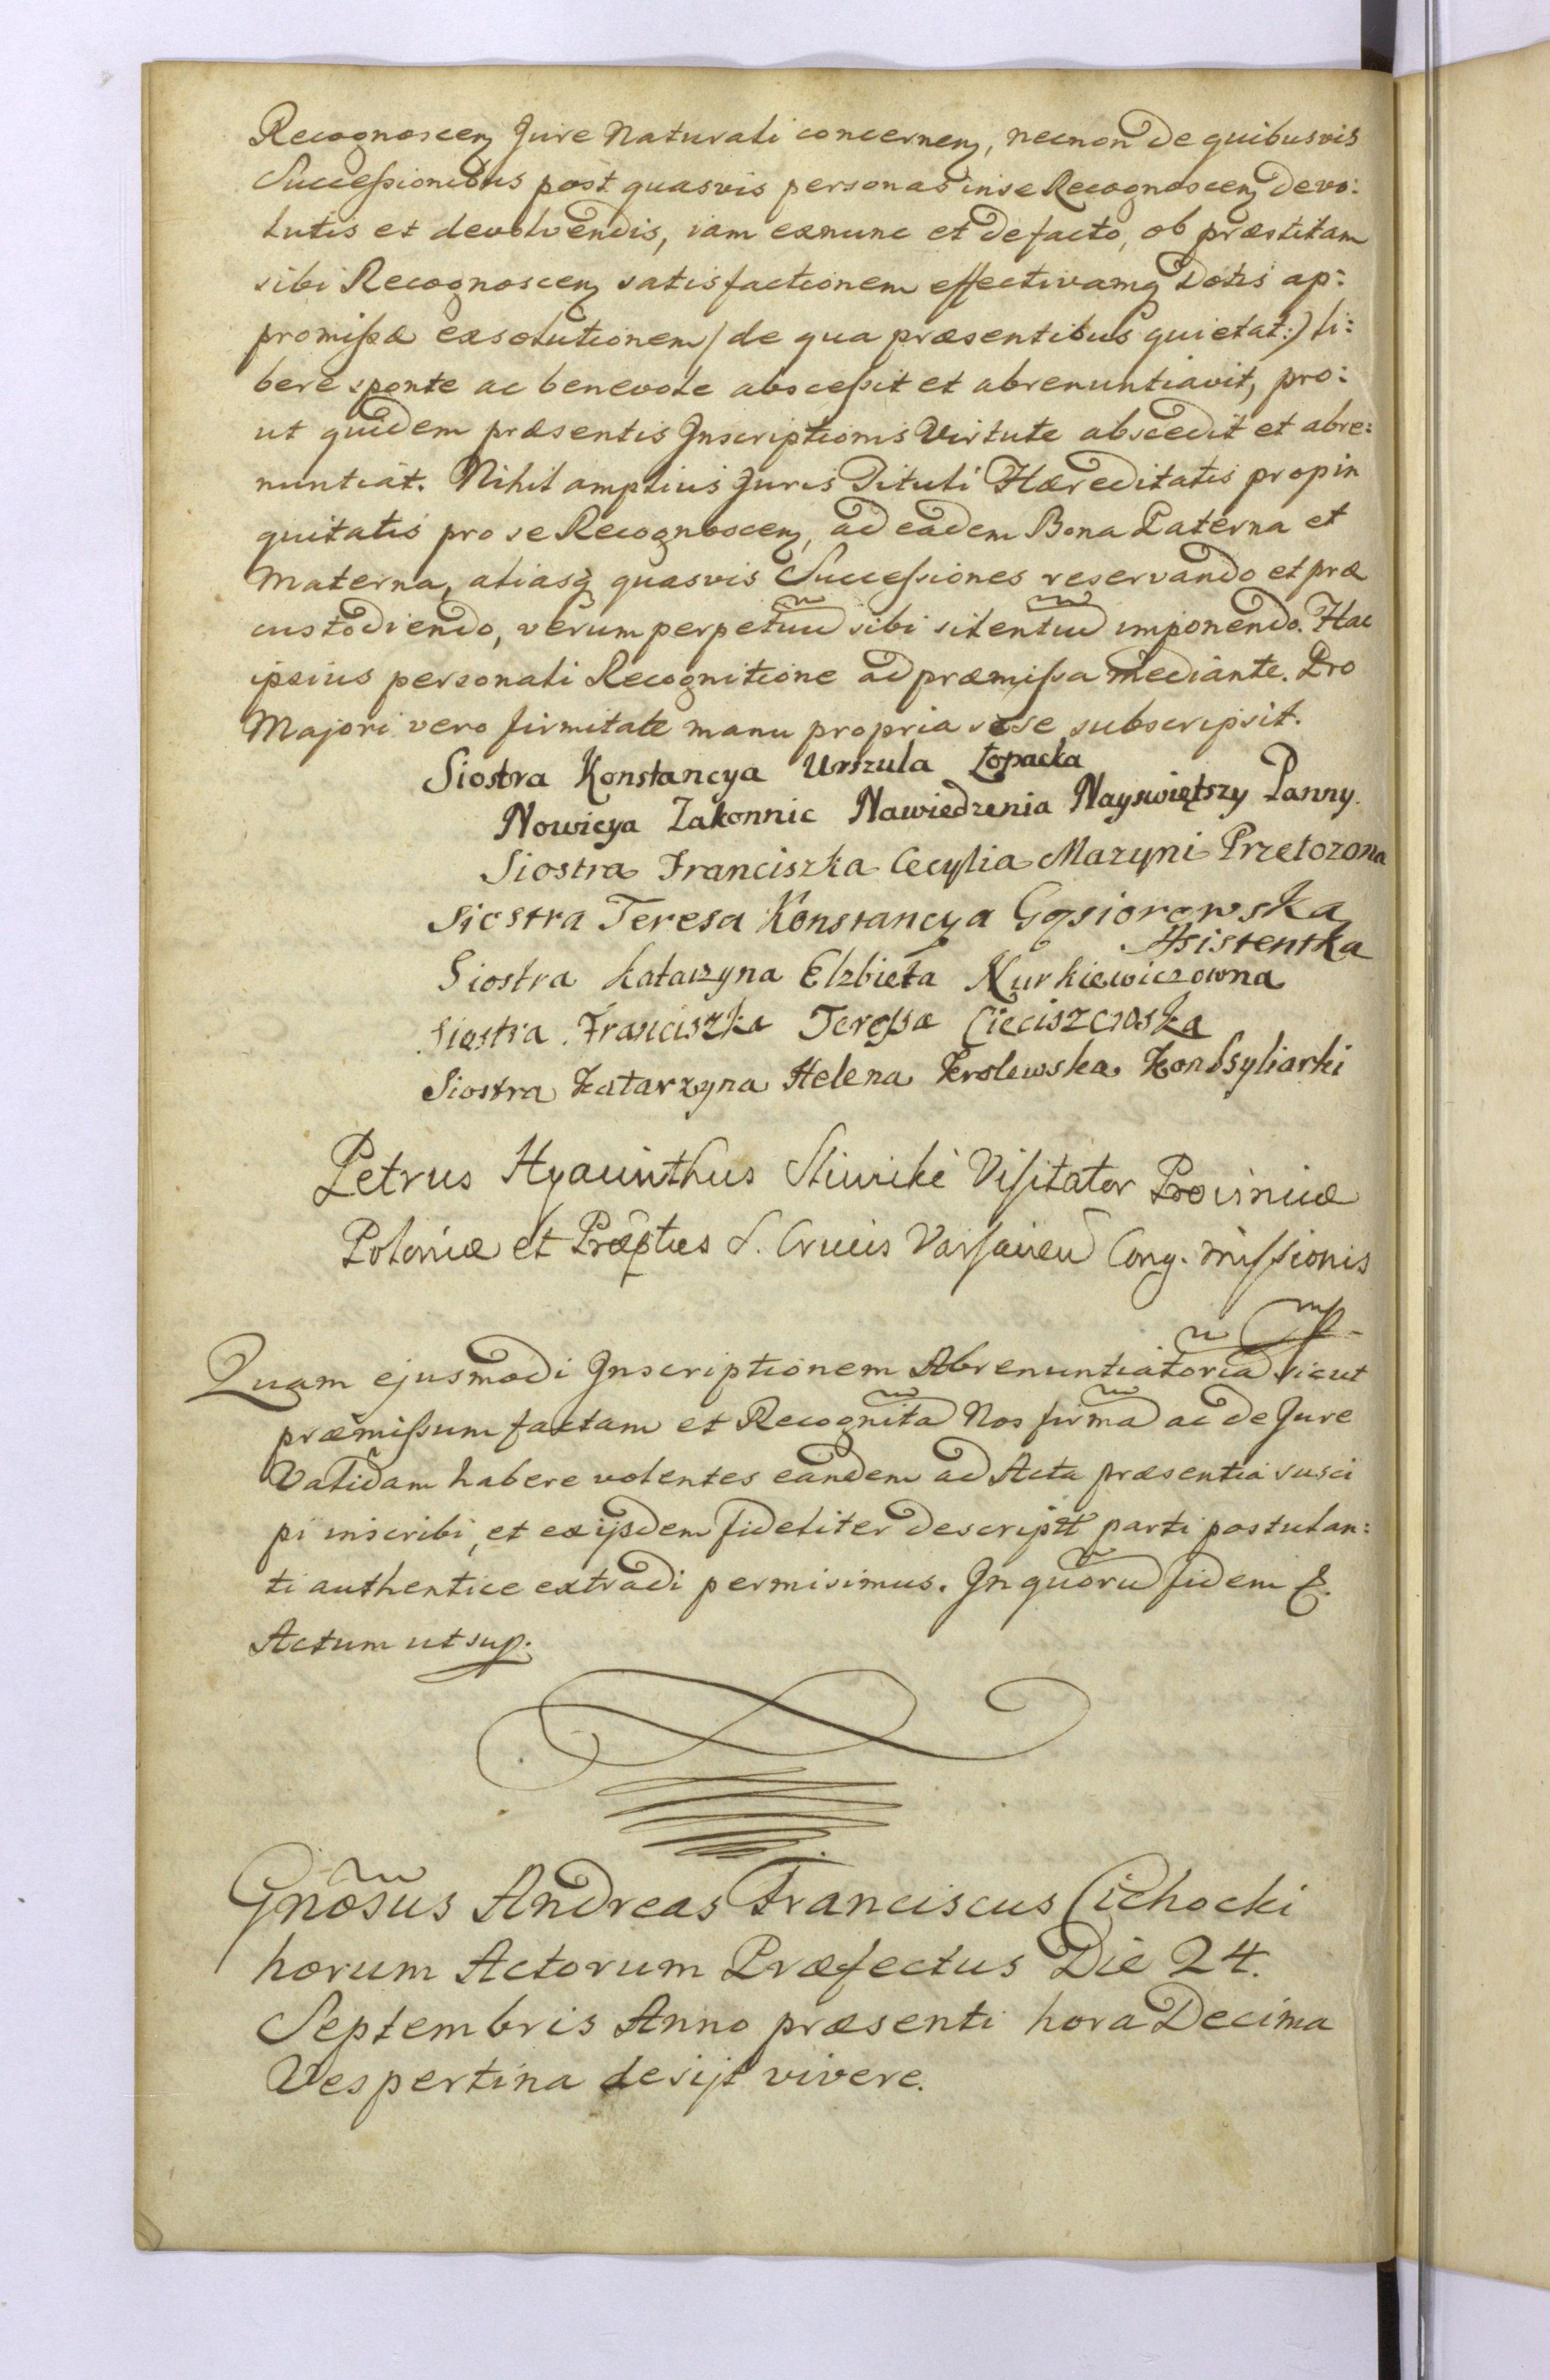 Recognoscen Jure Naturali concernen, necnon de quibusvis
Successionibus post quasvis personas in se Recognoscen devo:
lutis et devolvendis, iam exnunc et de facto, ob præstitam
sibi Recognoscen satisfactionem effectivamq Dotis ap:
promissæ exsolutionem /de qua præsentibus quietat:/ li:
bere sponte ac benevole abscessit et abrenuntiavit, pro:
ut quidem præsentis Inscriptionis Virtute abscedit et abre:
nuntiat. Nihil amplius Juris Tituli Hæreditatis propin
quitatis pro se Recognoscen, ad eadem Bona Paterna et
Materna, aliasq quasvis Successiones reservando et præ
custodiendo, verum perpetuũ sibi silentiũ imponendo. Hac
ipsius personali Recognitione ad præmissa mediante. Pro
Majori vero firmitate manu propria sese subscripsit.
Siostra Konstancya Urszula Łopacka
Nowicya Zakonnic Nawiedzenia Nayswiętszy Panny.
Siostra Franciszka Cecylia Mazyni Przełozona
Siostra Teresa Konstancya Gąsiorowska
Asistentka
Siostra Katarzyna Elzbieta Nurkiewiczowna
Siostra Franciszka Teressa Cieciszewska
Siostra Katarzyna Helena Krolewska Konssyliarki
Petrus Hyacinthus Sliwicki Visitator Provinciæ
Poloniæ et Præptus S. Crucis Varsavien Cong. Missionis
mp
Quam ejusmodi Inscriptionem Abrenuntiatoriã sicut
præmissum factam et Recognitã Nos firmã ac de Jure
Validam habere volentes eandem ad Acta præsentia susci
pi inscribi, et ex ijsdem fideliter descriptã parti postulan:
ti authentice extradi permisimus. In quorũ fidem &.
Actum ut sup.
Gnõsus Andreas Franciscus Cichocki
horum Actorum Præfectus Die 24.
Septembris Anno præsenti hora Decima
Vespertina desijt vivere.